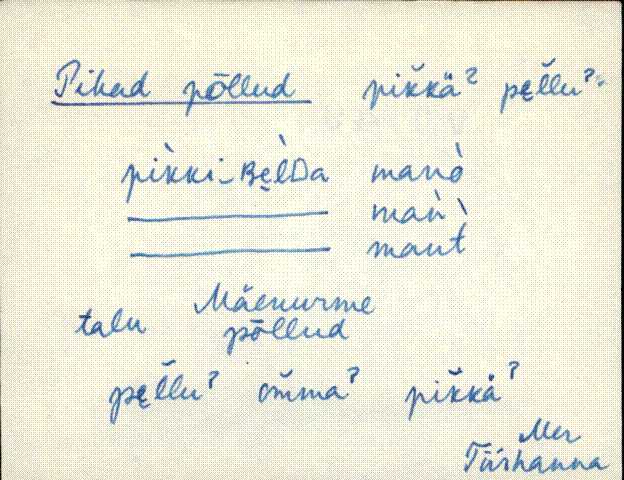 Pikad põllud pikkä? pęllu?
pìkki-BęlDa manò
maǹ
mant
talu Mäenurme
põllud
pęllu? omma? pikkä?
Mer